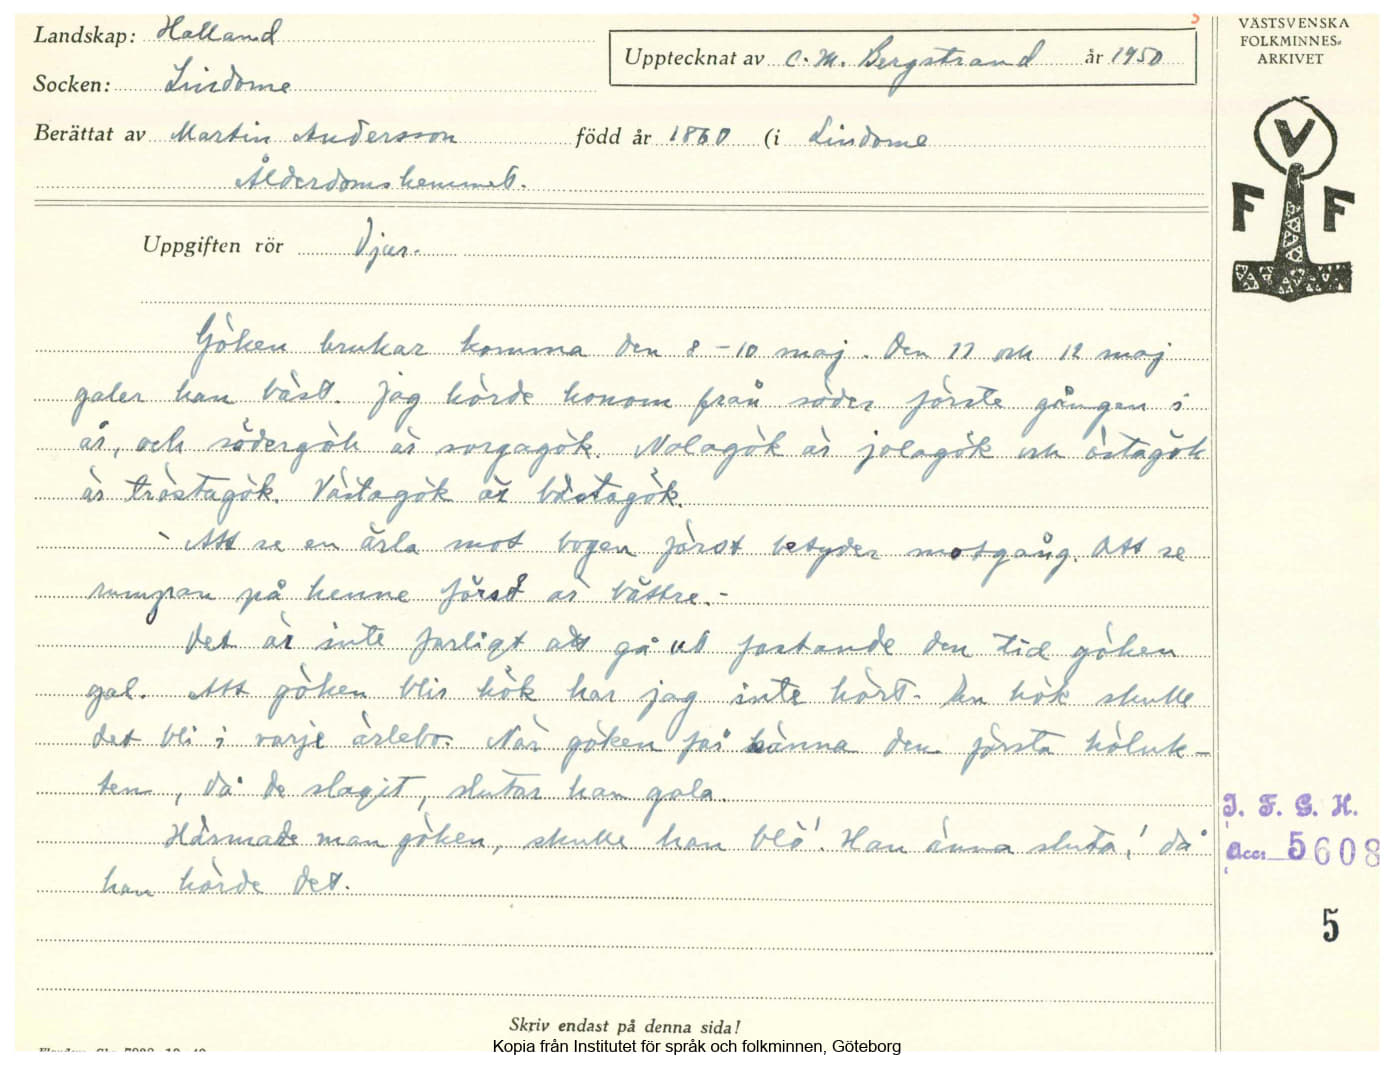 Landskap: Halland
Upptecknat av C. M. Bergstrand år 1950
Socken: Lindome
Berättat av Martin Andersson född år 1860 (i Lindome
Ålderdomshemmet.
VÄSTSVENSKA
FOLKMINNES-
ARKIVET
V
F F
Uppgiften rör Djur.
Göken brukar komma den 8-10 maj. Den 11 och 12 maj
galer han bäst. Jag hörde honom från söder förste gången i
år, och södergök är sorgagök. Nolagök är jolagök och östagök
är tröstagök. Västagök är bästagök.
Att se en ärla mot bogen först betyder motgång. Att se
rumpan på henne först är bättre.-
Det är inte farligt att gå ut fastande den tid göken
gal. Att göken blir hök har jag inte hört. En hök skulle
det bli i varje ärlebo. När göken får känna den första höluk-
ten, då de slagit, slutar han gala.
Härmade man göken, skulle han blö! Han änna sluta, då
han hörde det.
I. F. G. H.
Acc: 5608
5
Skriv endast på denna sida!
Kopia från Institutet för språk och folkminnen, Göteborg